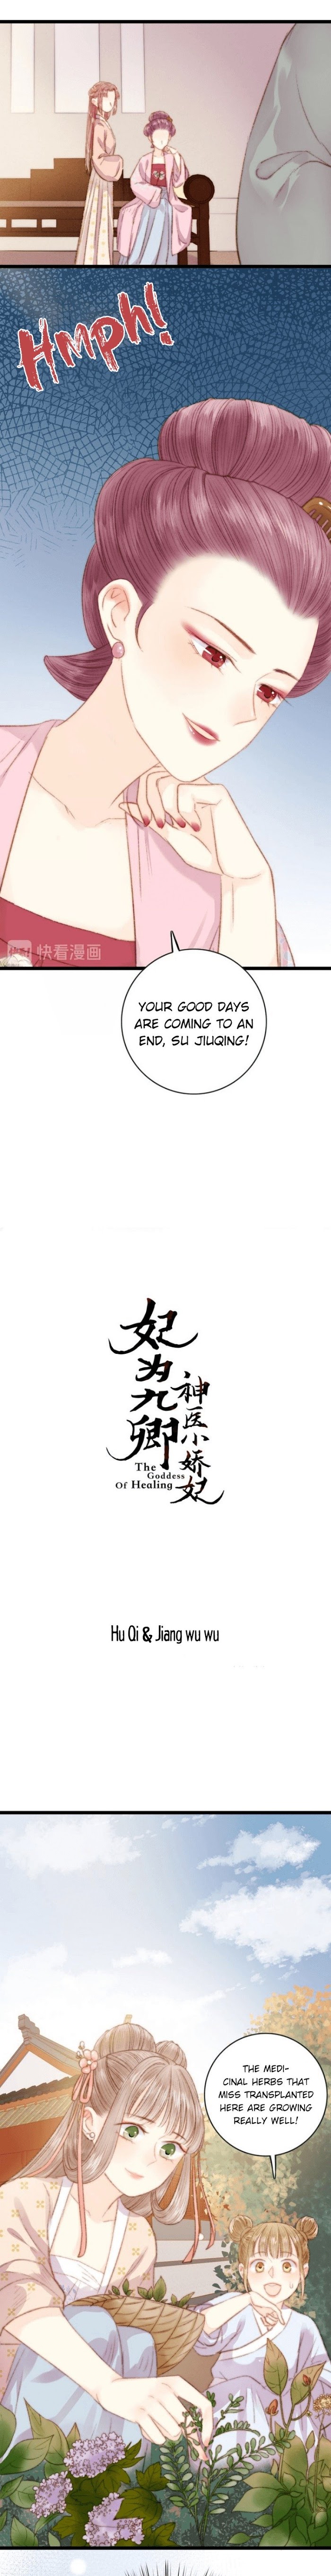 HMPH!
快看漫画
YOUR GOOD DAYS
ARE COMING TO AN
END, SU JIUQING!
妃为九卿
神医小娇妃
The
Goddess
Of Healing
Hu Qi & Jiang wu wu
THE MEDI-
CINAL HERBS THAT
MISS TRANSPLANTED
HERE ARE GROWING
REALLY WELL!